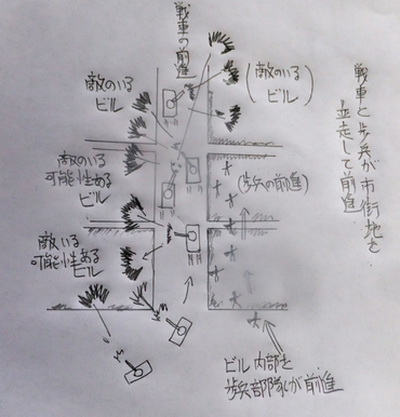 戦車と歩兵が市街地を
並走して前進
戦車の前進
(敵のいる
ビル)
敵のいる
ビル
敵のいる
可能性ある
ビル
(歩兵の前進)
敵いる
可能性ある
ビル
ビル内部を
歩兵部隊が前進